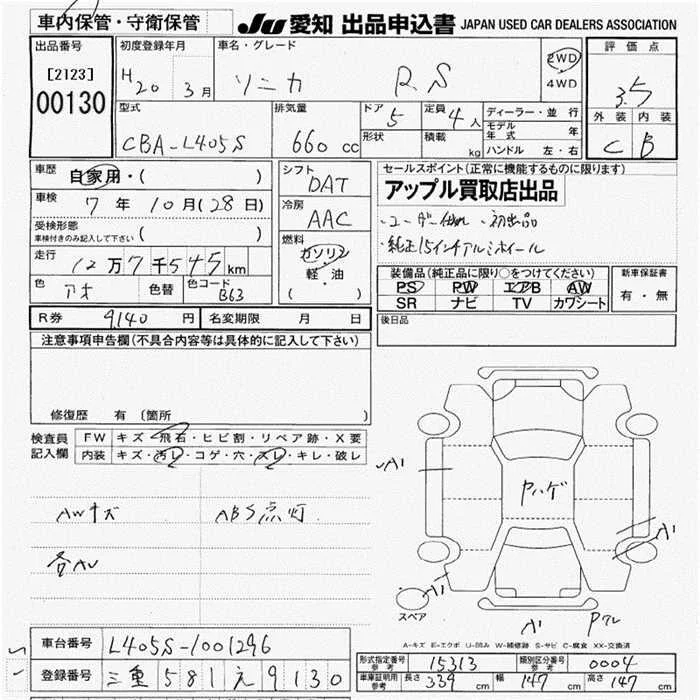 車内保管・守衛保管
JU 愛知 出品申込書 JAPAN USED CAR DEALERS ASSOCIATION
出品番号
[2123]
00130
初度登録年月
H20 3月
車名・グレード
ソニカ RS
2WD
4WD
評価点
3.5
外装 内装
C B
型式
CBA-L405S
排気量
660 cc
ドア
5
定員
4人
形状
積載
kg
ディーラー・並行
モデル年式 年
ハンドル 左・右
車歴
自家用・( )
車検
7年 10月(28日)
受検形態
車検付きのみ記入して下さい ( )
走行
12万7千545km
色
アオ
色替
色コード
B63
シフト
DAT
冷房
AAC
燃料
ガソリン
軽・油
( )
セールスポイント(正常に機能するものに限ります)
アップル買取店出品
・ユーザー仕入れ ・初出品
・純正15インチアルミホイール
装備品(純正品に限り○をつけてください)
PS PW エアB AW
SR ナビ TV カワシート
新車保証書
有・無
R券 9,140 円
名変期限 月 日
後日品
注意事項申告欄(不具合内容等は具体的に記入して下さい)
修復歴 有 (箇所 )
検査員記入欄
FW キズ・飛石・ヒビ割・リペア跡・X要
内装 キズ・汚レ・コゲ・穴・スレ・キレ・破レ
AWキズ ABS点灯
各AU
A1
ヤハゲ
A1
A1
スペア
A1
A-キズ E-エクボ U-凹み W-補修跡 S-サビ C-腐食 XX-交換済
車台番号 L405S-1001296
登録番号 三重 581 え 9130
形式指定番号 参考 15313
類別区分番号 参考 0004
車庫証明用 参考 長さ 339 cm 幅 147 cm 高さ 147 cm